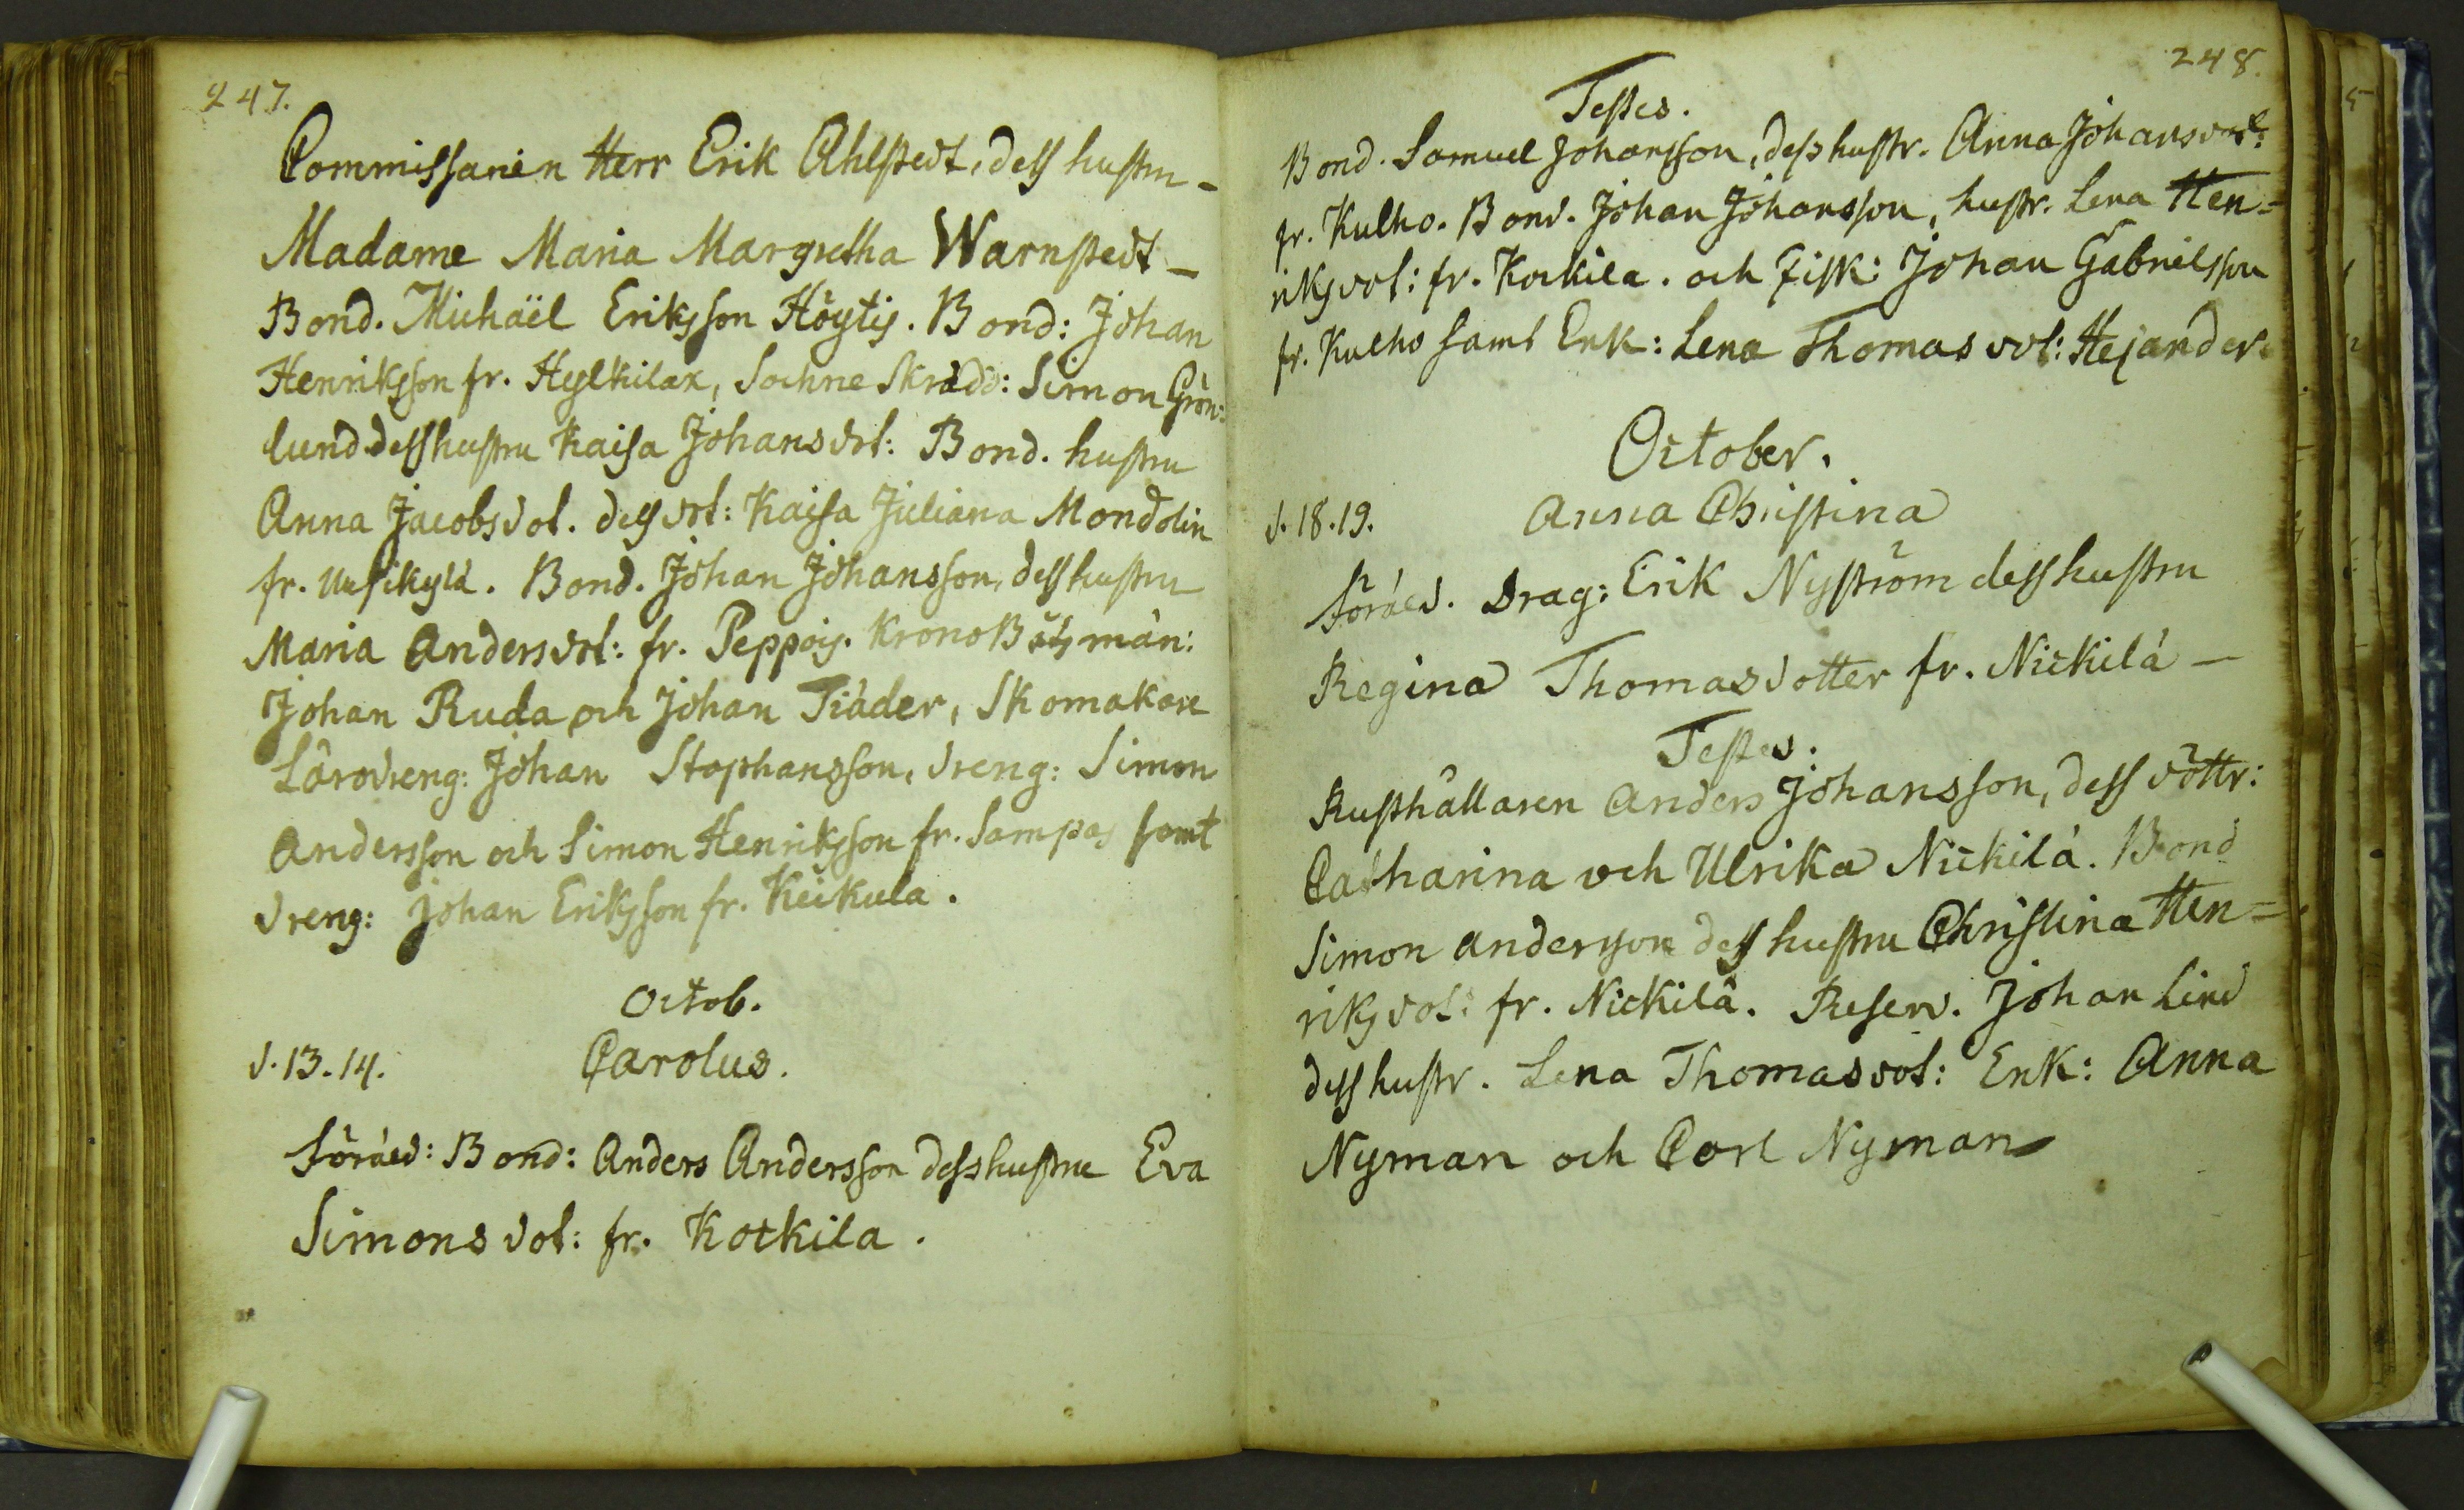 247.
Commissarien Herr Erik Ahlstedt, dess hustru -
Madame Maria Margretha Warnstedt -
Bond. Michaël Eriksson Höytis. Bond: Johan
Henriksson fr. Hylkilax, Sochne Skrädd: Simon Grön:
lund dess hustru Kaisa Johansdot: Bond. hustru
Anna Jacobsdot. dess dot: Kaisa Juliana Mondolin
fr. Uusikylä. Bond. Johan Johansson, dess hustru
Maria Andersdot: fr. Peppois. Krono Båtsmän:
Johan Ruda och Johan Tiäder, Skomakare
Lärodreng: Johan Stophansson, dreng: Simon
Andersson och Simon Henriksson fr. Sampas samt
dreng: Johan Eriksson fr. Keikula.
Octob.
d. 13. 14. Carolus.
Föräld: Bond: Anders Andersson dess hustru Eva
Simonsdot: fr. Kotkila.
248.
Testes.
Bond. Samuel Johansson, dess hustr. Anna Johansdot:
fr. Kulho. Bond. Johan Johansson, hustr. Lena Hen=
riksdot: fr. Kotkila. och Fisk: Johan Gabrielsson
fr. Kulho samt Enk: Lena Thomasdot: Hejander.
October.
d. 18. 19. Anna Christina
Föräld. Drag: Erik Nyström dess hustru
Regina Thomasdotter fr. Nickilä -
Testes:
Rusthållaren Anders Johansson, dess döttr:
Catharina och Ulrika Nickilä. Bond
Simon Andersson dess hustru Christina Hen=
riksdot: fr. Nickilä. Reserv. Johan Lind
dess hustr. Lena Thomasdot: Enk: Anna
Nyman och Carl Nyman